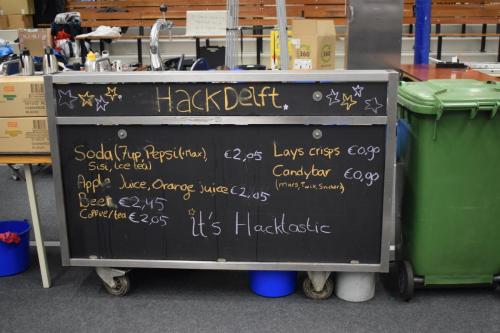 HackDelft.
Soda (7up, Pepsi (+Max), €2,05
Sisi, Ice tea)
Apple Juice, Orange juice €2,05
Beer €2,45
Coffee/tea €2,05
Lays crisps €0,90
Candybar €0,90
(Mars, Twix, Snickers)
it's Hacktastic